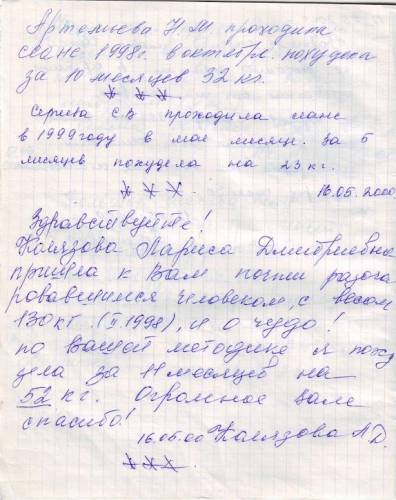 Артемьева Н.М проходила
сеанс 1998г. в октябр. похудела
за 10 месяцев 32 кг.
Серова С В проходила сеанс
в 1999 году в мае месяце. За 5
месяцев похудела на 23 кг.
16.05.2000
Здравствуйте!
Лариса Дмитриевна
пришла к Вам почти разоча
ровавшимся человеком, с весом
130 кг. (II.1998), и о чудо!
по Вашей методике я поху
дела за 11 месяцев на
52 кг. Огромное вам
спасибо!
16.05.00 Л Д.